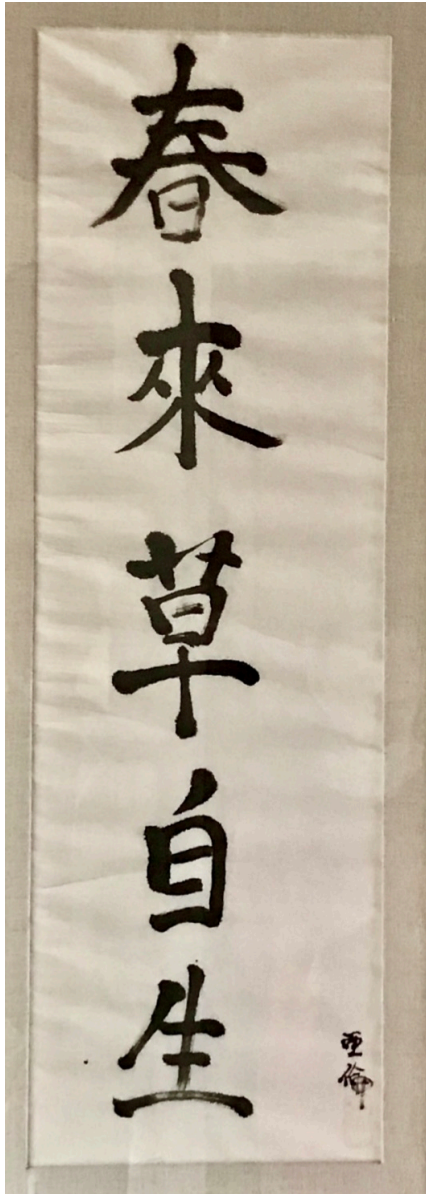 春來草自生
亜倫